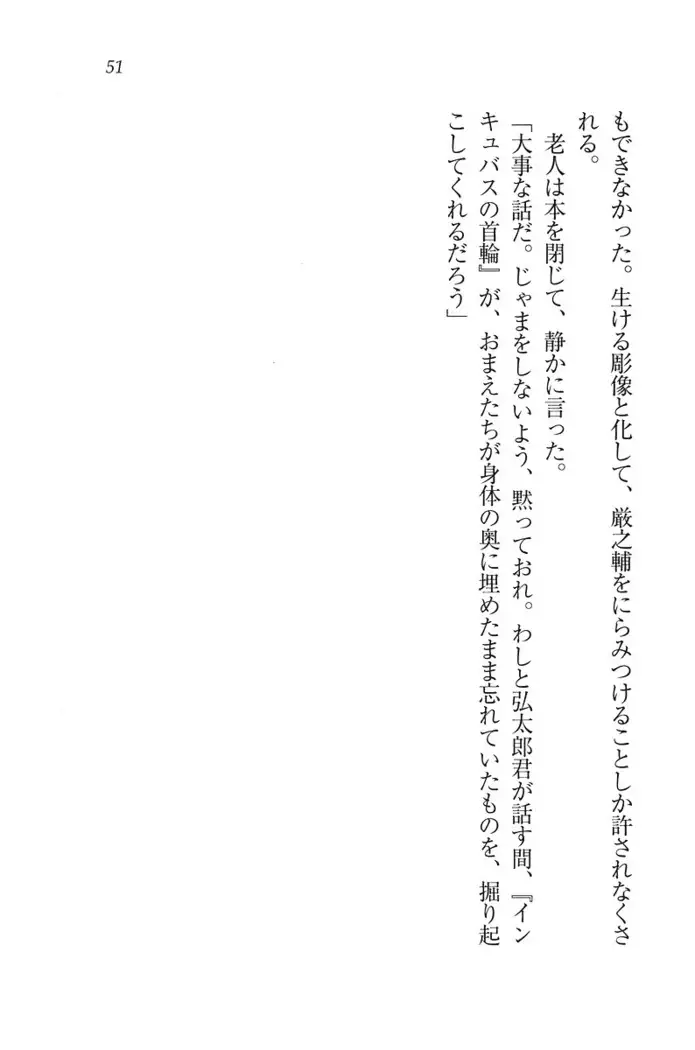 51
もできなかった。生ける彫像と化して、厳之輔をにらみつけることしか許されなくさ
れる。
　老人は本を閉じて、静かに言った。
「大事な話だ。じゃまをしないよう、黙っておれ。わしと弘太郎君が話す間、『イン
キュバスの首輪』が、おまえたちが身体の奥に埋めたまま忘れていたものを、掘り起
こしてくれるだろう」